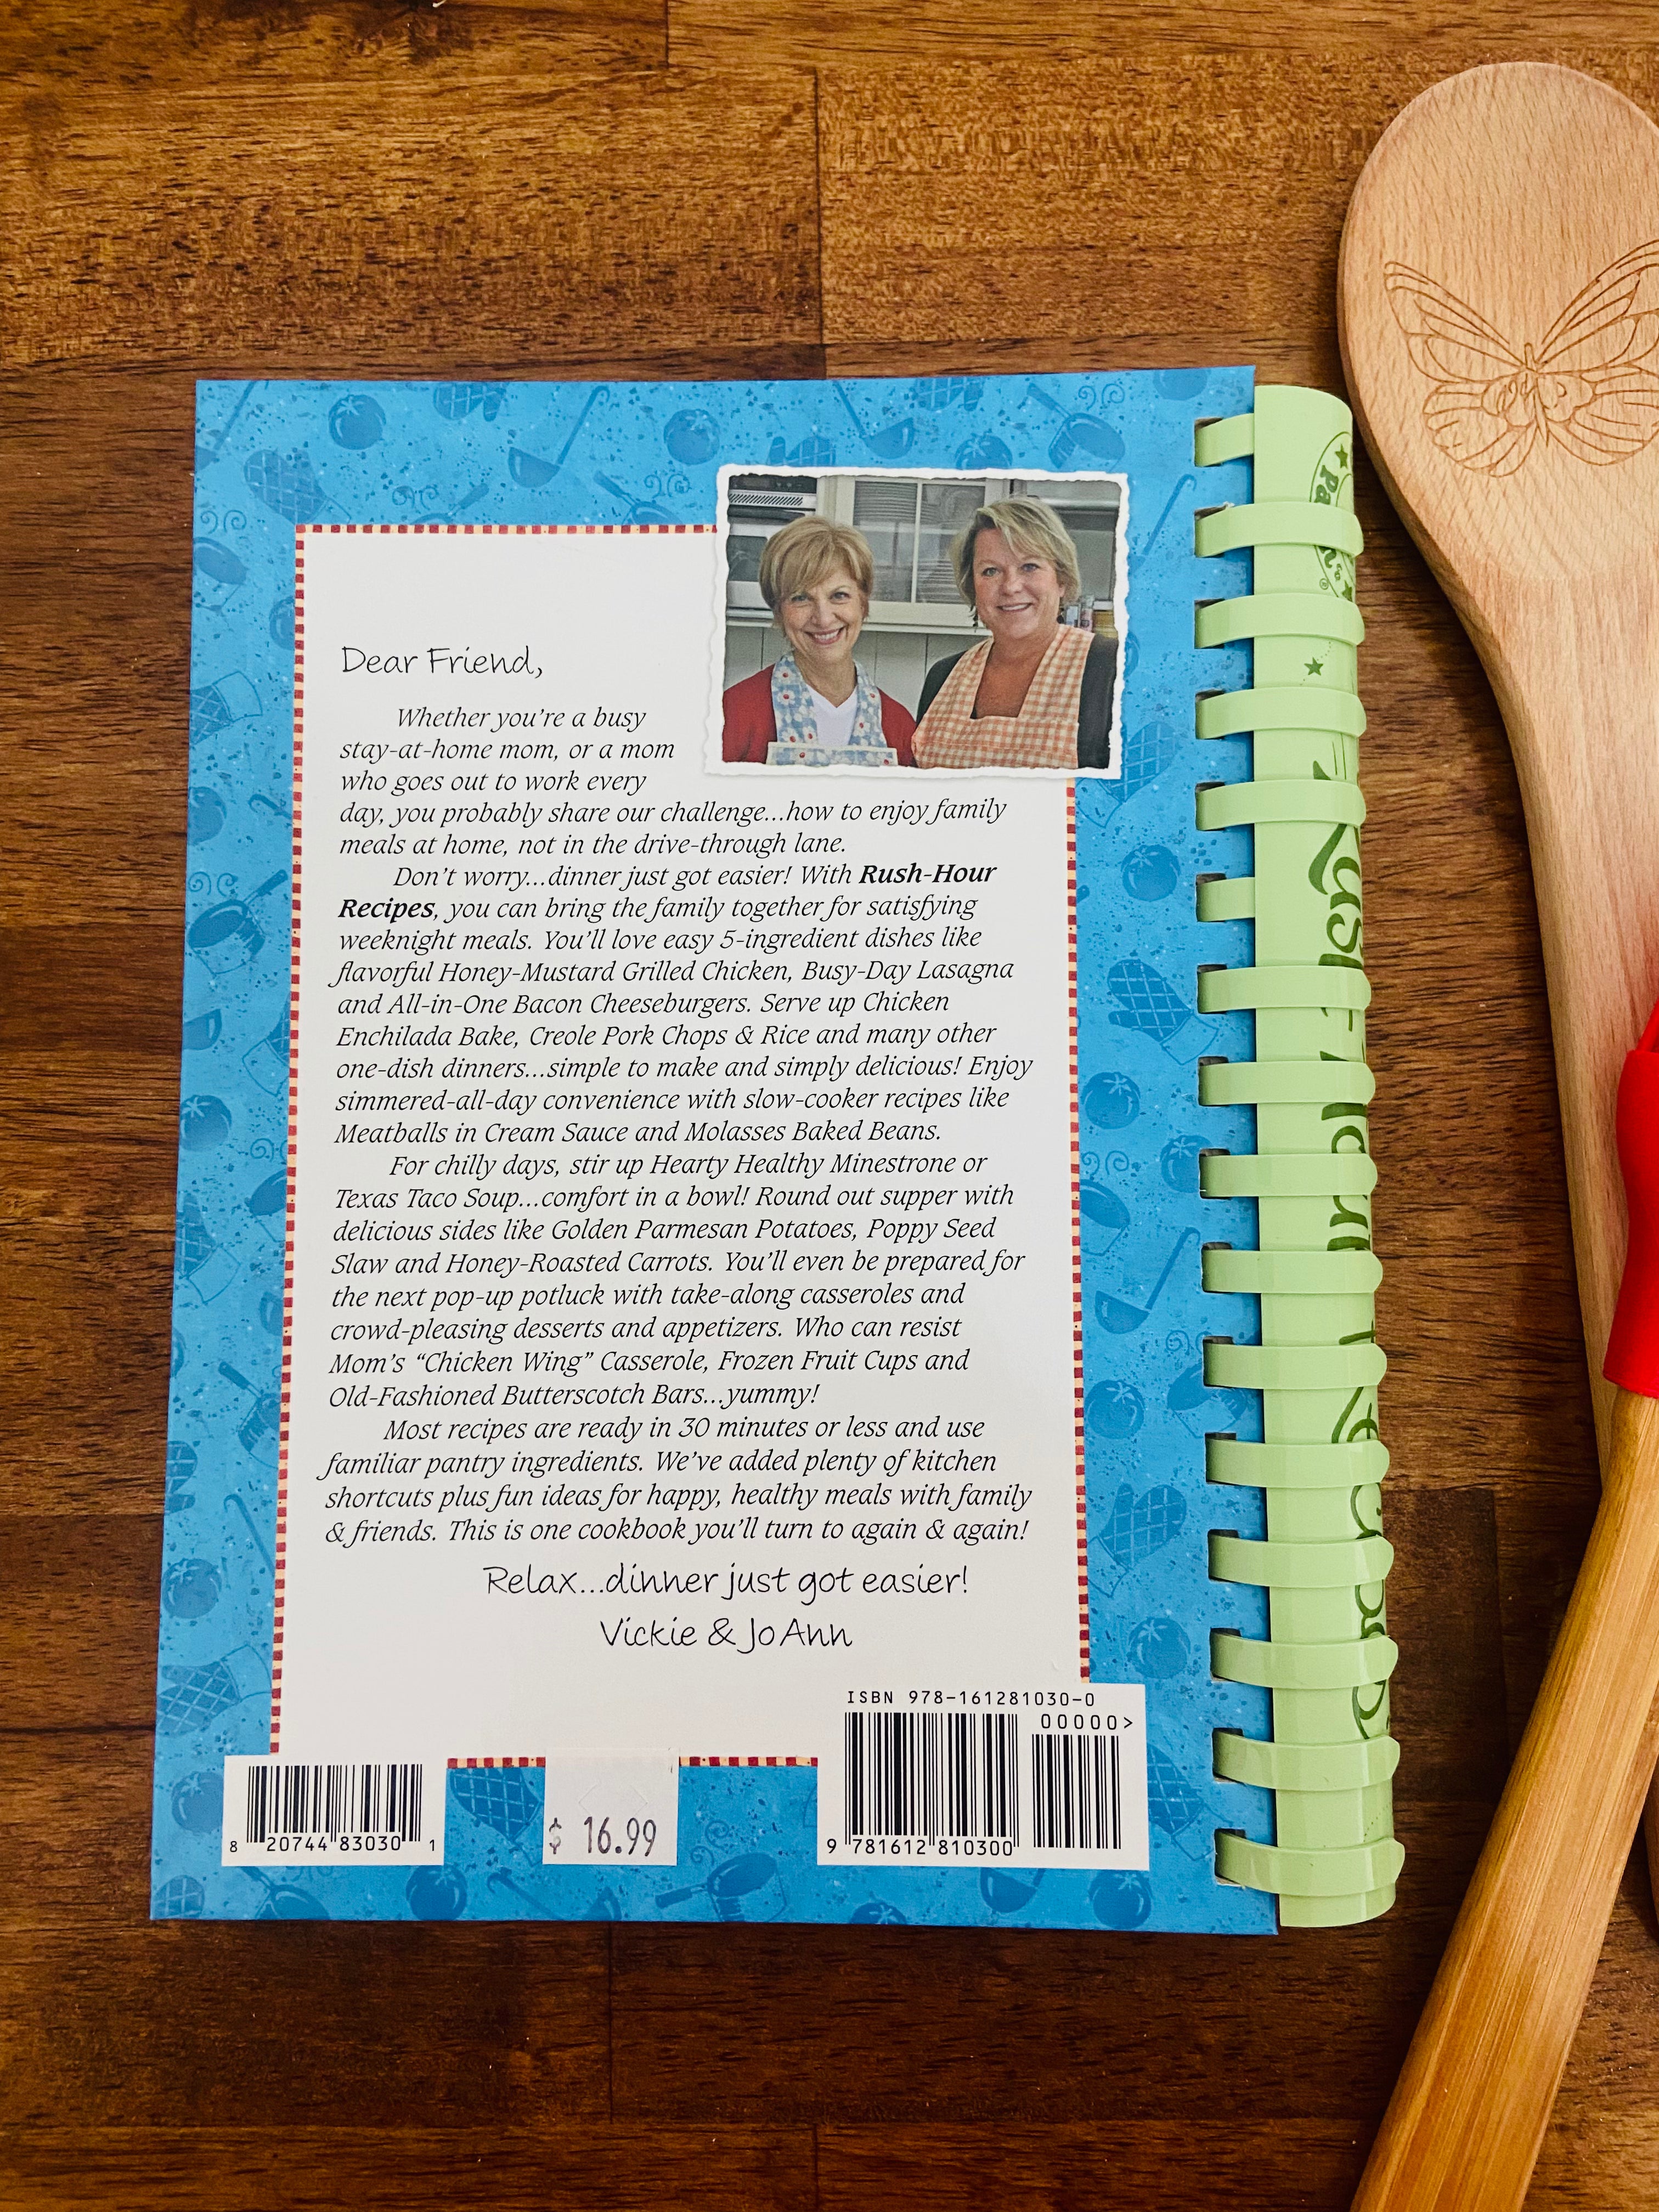 Dear Friend,
Whether you're a busy
stay-at-home mom, or a mom
who goes out to work every
day, you probably share our challenge...how to enjoy family
meals at home, not in the drive-through lane.
Don't worry...dinner just got easier! With Rush-Hour
Recipes, you can bring the family together for satisfying
weeknight meals. You'll love easy 5-ingredient dishes like
flavorful Honey-Mustard Grilled Chicken, Busy-Day Lasagna
and All-in-One Bacon Cheeseburgers. Serve up Chicken
Enchilada Bake, Creole Pork Chops & Rice and many other
one-dish dinners...simple to make and simply delicious! Enjoy
simmered-all-day convenience with slow-cooker recipes like
Meatballs in Cream Sauce and Molasses Baked Beans.
For chilly days, stir up Hearty Healthy Minestrone or
Texas Taco Soup...comfort in a bowl! Round out supper with
delicious sides like Golden Parmesan Potatoes, Poppy Seed
Slaw and Honey-Roasted Carrots. You'll even be prepared for
the next pop-up potluck with take-along casseroles and
crowd-pleasing desserts and appetizers. Who can resist
Mom's "Chicken Wing" Casserole, Frozen Fruit Cups and
Old-Fashioned Butterscotch Bars...yummy!
Most recipes are ready in 30 minutes or less and use
familiar pantry ingredients. We've added plenty of kitchen
shortcuts plus fun ideas for happy, healthy meals with family
& friends. This is one cookbook you'll turn to again & again!
Relax...dinner just got easier!
Vickie & JoAnn
ISBN 978-161281030-0
00000>
8 20744 83030 1
$ 16.99
9 781612 810300